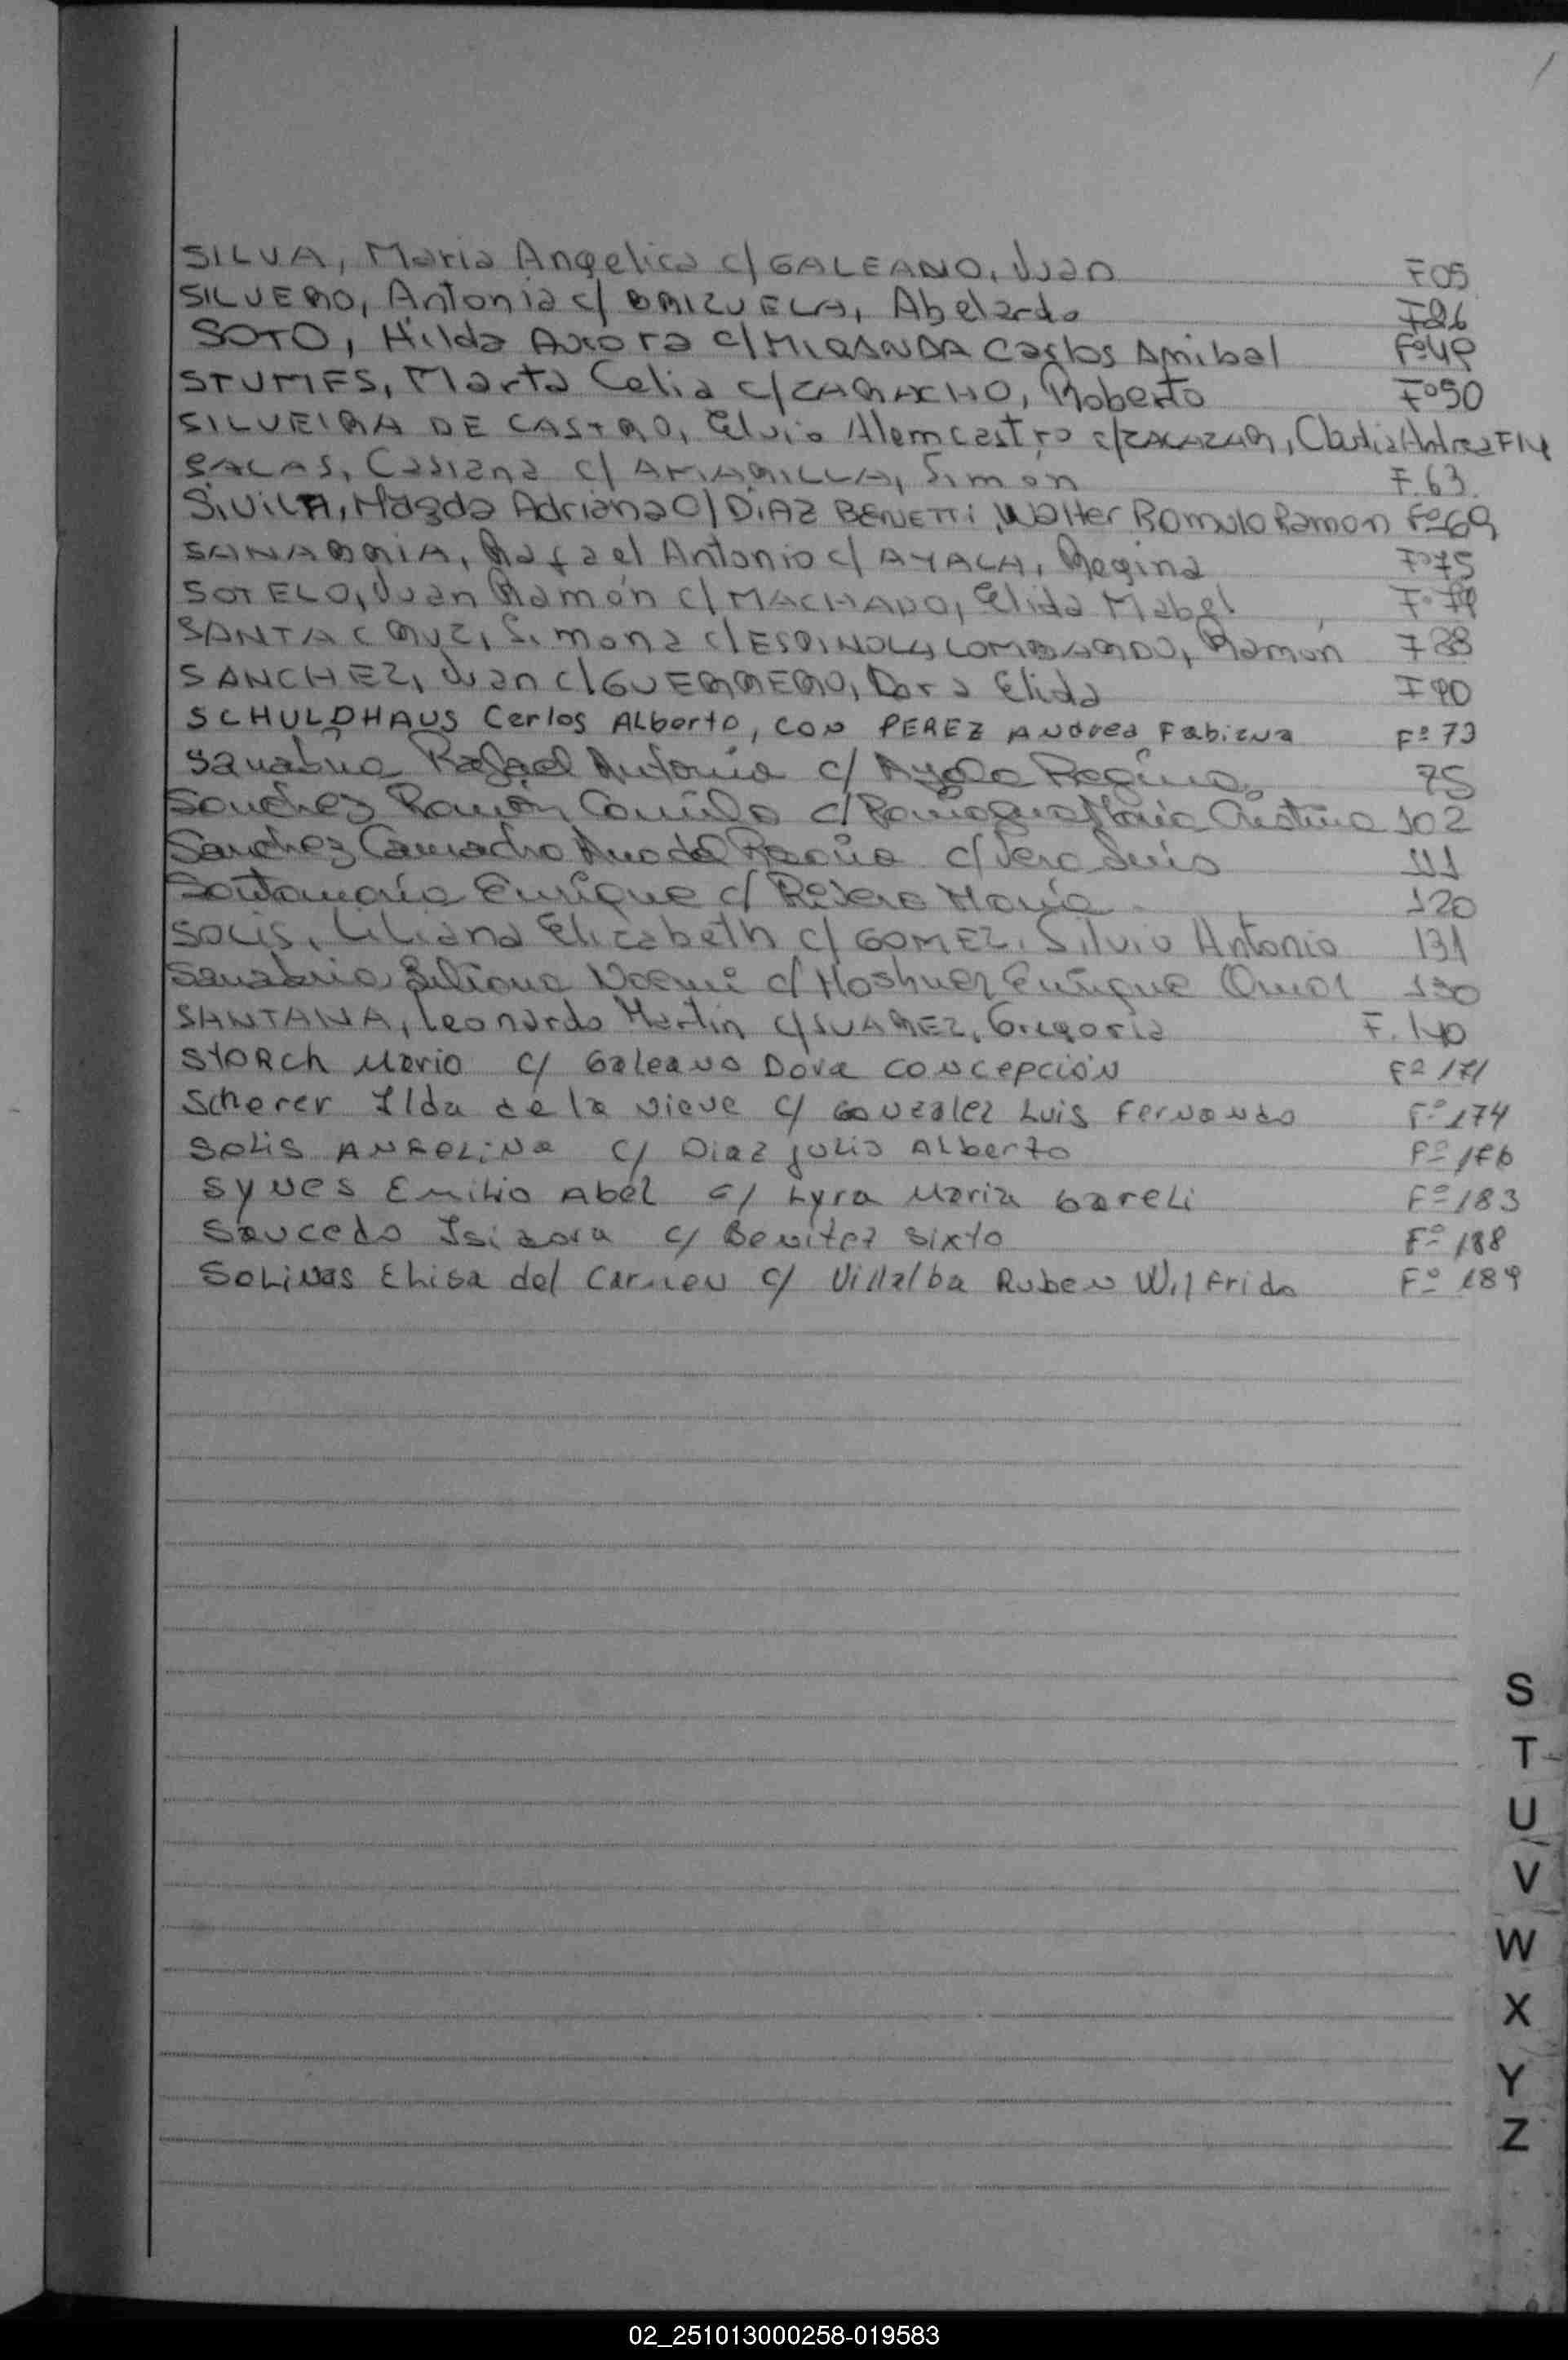 SILVA, Maria Angelica c/ GALEANO, Juan F05
SILVERO, Antonia c/ BRIZUELA, Abelardo F26
SOTO, Hilda Aurora c/ MIRANDA Carlos Anibal Fº49
STUMFS, Marta Celia c/ CAMACHO, Roberto Fº50
SILVEIRA DE CASTRO, Elvio Alemcastro c/ , Claudia Andrea F14
SALAS, Casiana c/ AMARILLA, Simon F.63.
SiVILA, Magda Adriana C/ DiAZ BENETTi, Walter Romulo Ramon Fº69
SANABRIA, Rafael Antonio c/ AYALA, Regina Fº75
SOTELO, Juan Ramón c/ MACHADO, Elida Mabel Fº79
SANTA CRUZ, Simona c/ ESPINOLA LOMBARDO, Ramón F88
SANCHEZ, Juan c/ GUERRERO, Dora Elida F90
SCHULDHAUS Carlos Alberto, CON PEREZ Andrea Fabiana Fº 73
Sanabria Rafael Antonio c/ Ayala Regina 75
Sanchez Ramón Camilo c/ Maria Cristina 102
Sanchez Camacho Ramona c/ Vera Luis 111
Santamaria Enrique c/ Rivero Maria 120
SOLIS, Liliana Elizabeth c/ GOMEZ, Silvio Antonio 131
Sanabria Liliana Noemi c/ Enrique Omar 130
SANTANA, Leonardo Martin c/ SUAREZ, Gregoria F.140
STORCH Mario c/ Galeano Dora Concepción Fº 171
Scherer Ilda de la Nieve c/ Gonzalez Luis Fernando Fº 174
Solis Angelina c/ Diaz Julio Alberto Fº 176
Synes Emilio Abel c/ Lyra Maria Gareli Fº 183
Saucedo Isidora c/ Benitez Sixto Fº 188
Solinas Elisa del Carmen c/ Villalba Ruben Wilfrido Fº 189
S
T
U
V
W
X
Y
Z
02_251013000258-019583